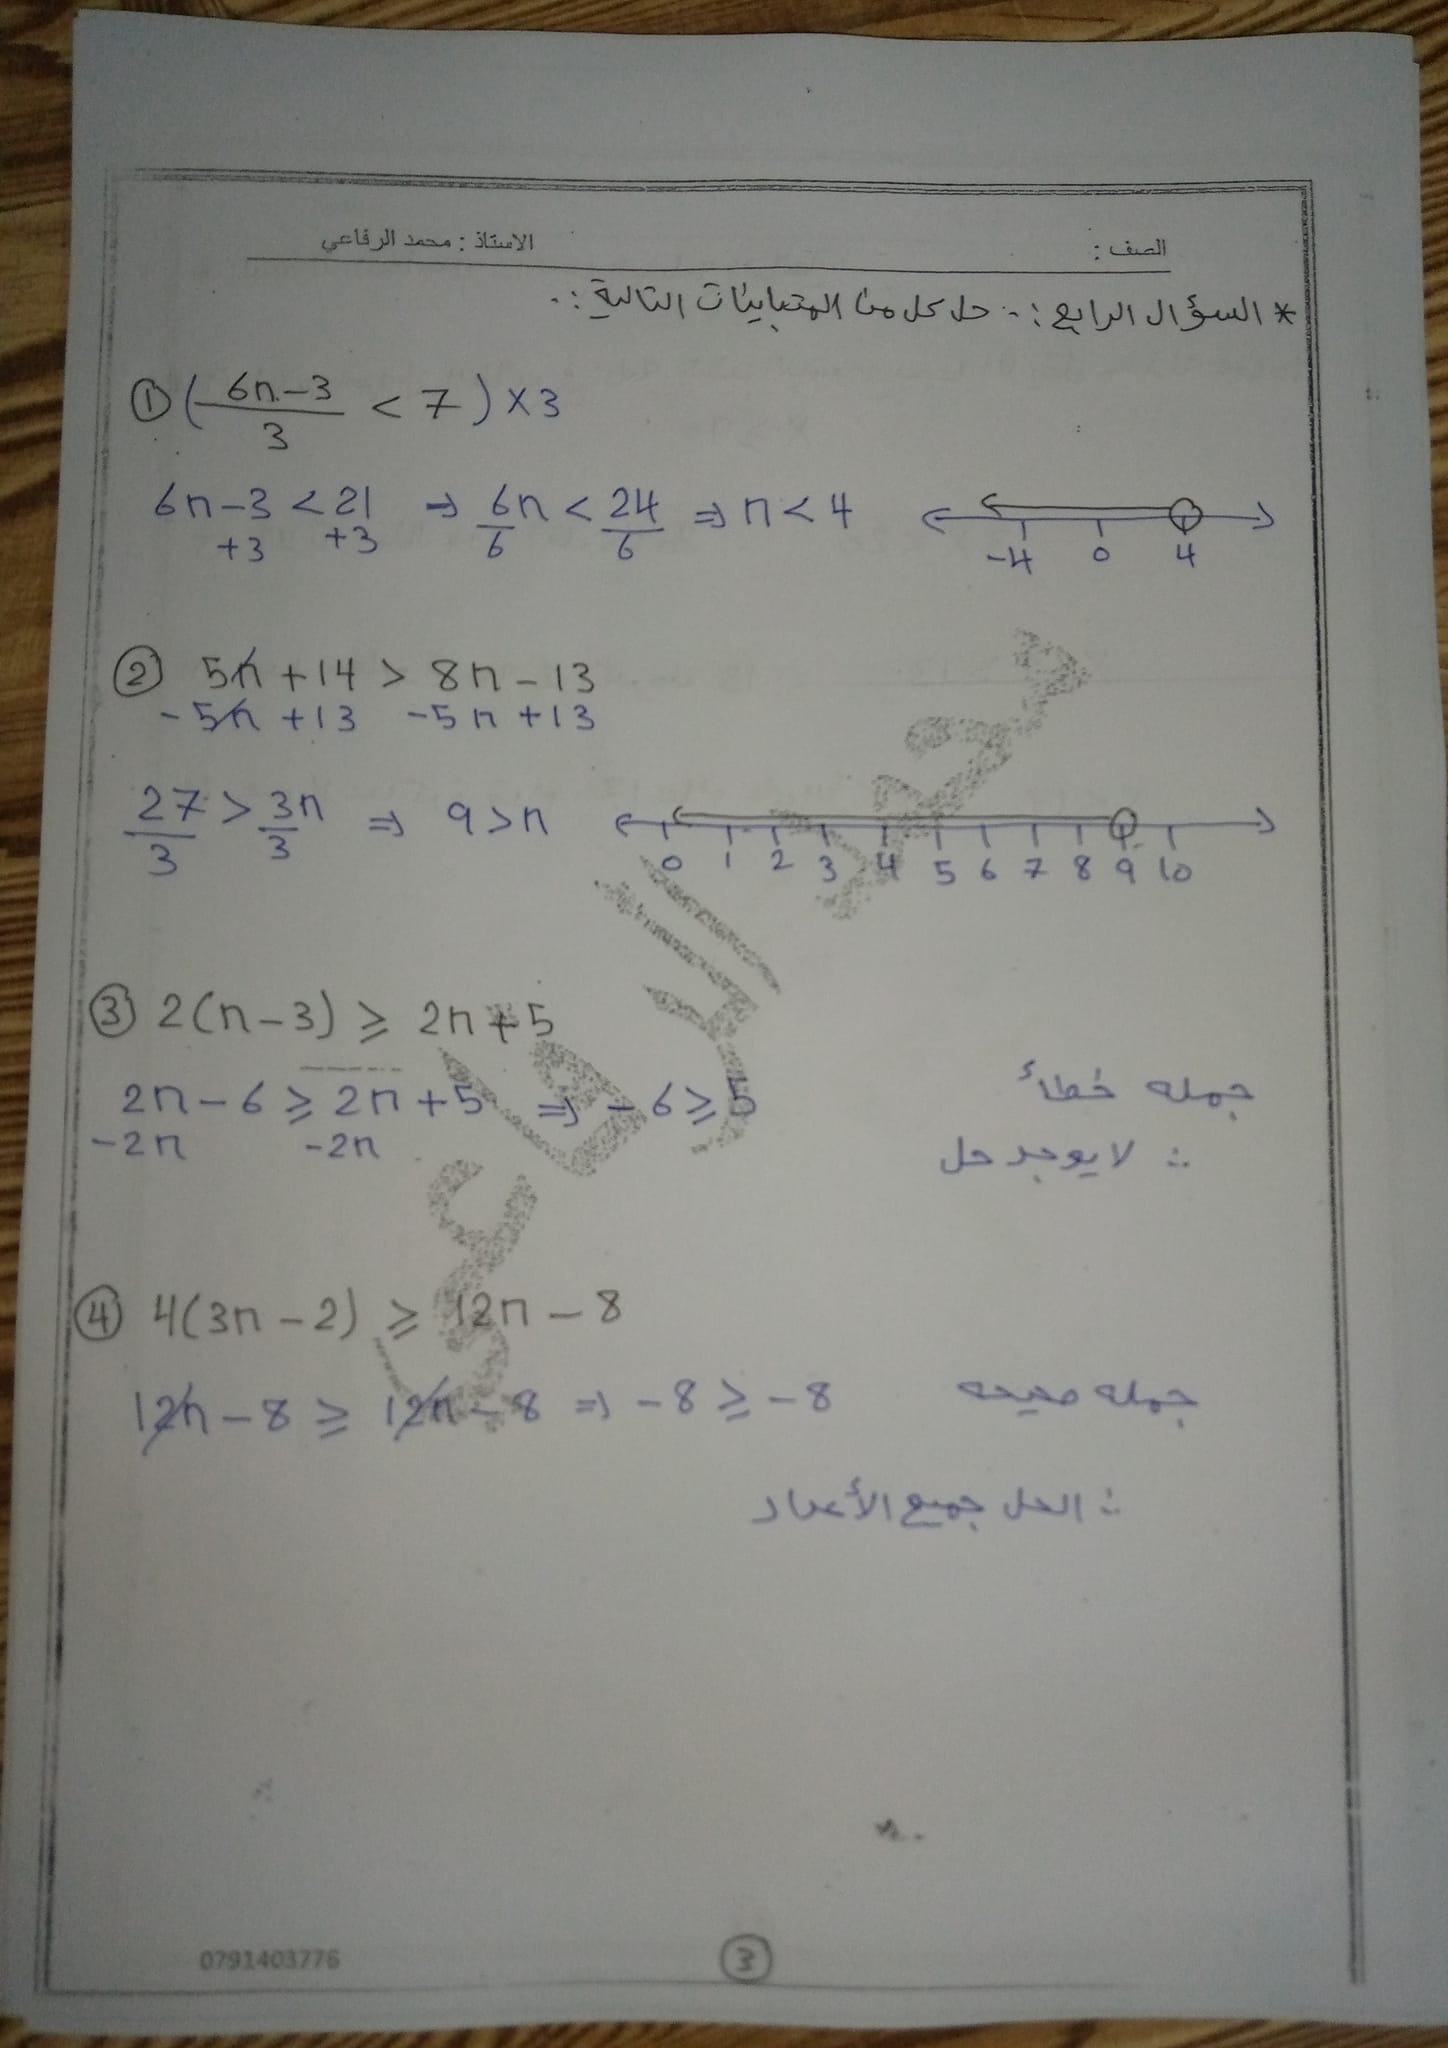 الصف : الاستاذ : محمد الرفاعي
* السؤال الرابع :- حل كل من المتباينات التالية :-
① ( 6n-3 / 3 < 7 ) × 3
6n-3 < 21 ⇒ 6n/6 < 24/6 ⇒ n < 4
+3 +3
-4 0 4
② 5n + 14 > 8n - 13
-5n +13 -5n +13
27/3 > 3n/3 ⇒ 9 > n
0 1 2 3 4 5 6 7 8 9 10
③ 2(n-3) ≥ 2n+5
2n-6 ≥ 2n+5 ⇒ -6 ≥ 5 جمله خطأ
-2n -2n
∴ لا يوجد حل
④ 4(3n-2) ≥ 12n-8
12n-8 ≥ 12n-8 ⇒ -8 ≥ -8 جمله صحيحه
∴ الحل جميع الأعداد
محمد الرفاعي
0791403776
③